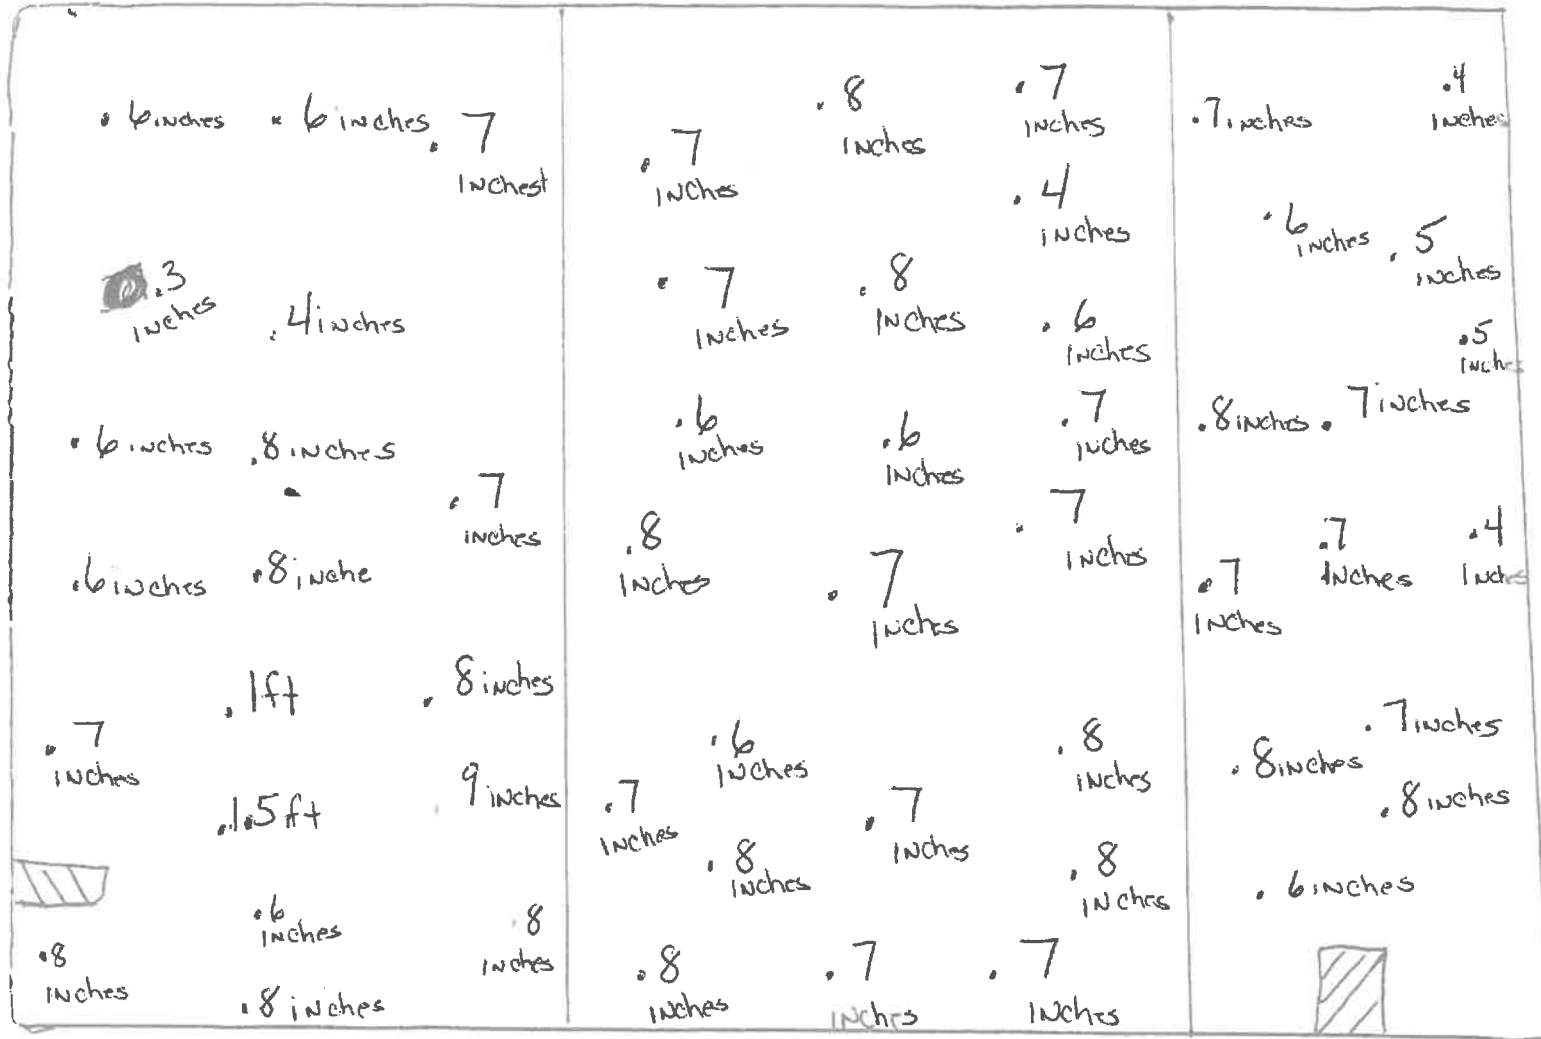 . 6 inches . 6 inches . 7
inchest
. 3
inches
. 4 inches
. 6 inches . 8 inches
. 7
inches
. 6 inches . 8 inche
. 1 ft . 8 inches
. 7
inches
. 1.5 ft 9 inches
. 6
inches
. 8
inches
. 8
inches
. 8 inches
. 8
inches
. 7
inches
. 7
inches
. 4
inches
. 7
inches
. 8
inches
. 6
inches
. 6
inches
. 6
inches
. 7
inches
. 8
inches
. 7
inches
. 7
inches
. 6
inches
. 8
inches
. 7
inches
. 7
inches
. 8
inches
. 8
inches
. 8
inches
. 7
inches
. 7
inches
. 7 inches
. 4
inches
. 6
inches
. 5
inches
. 5
inches
. 8 inches . 7 inches
. 7
inches
. 4
inches
. 7
inches
. 7 inches
. 8 inches
. 8 inches
. 6 inches